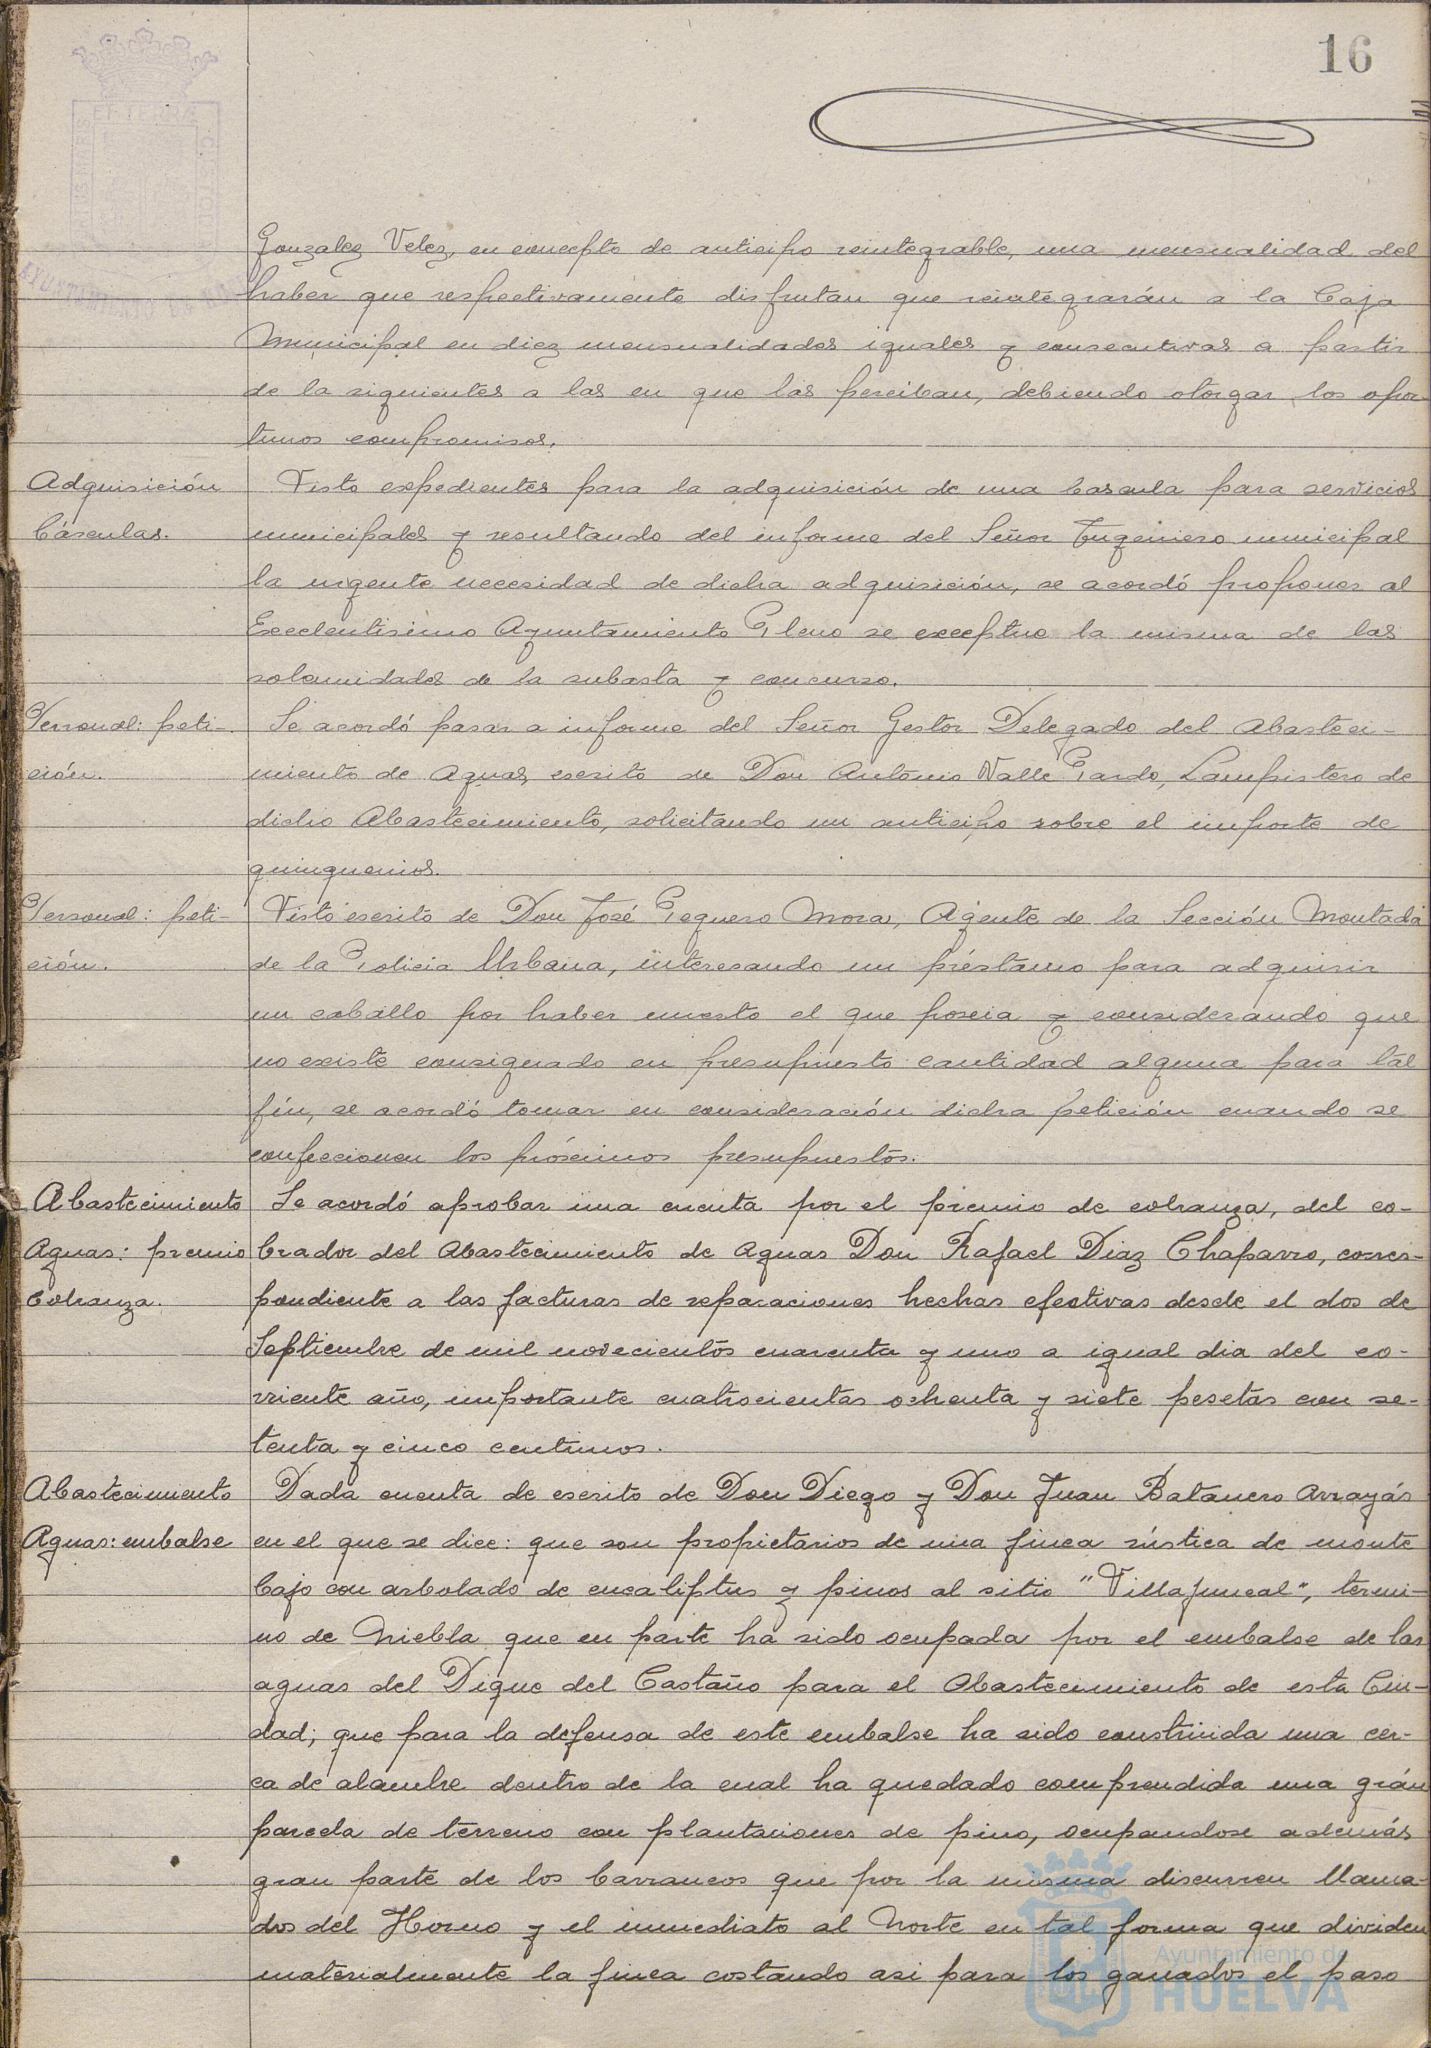 16
Gonzalez Velez, en concepto de anticipo reintegrable, una mensualidad del
haber que respectivamente disfrutan que reintegrarán a la Caja
Municipal en diez mensualidades iguales y consecutivas a partir
de la siguientes a las en que las perciban, debiendo otorgar los opor-
tunos compromisos.
Adquisición
Básculas.
Visto expedientes para la adquisición de una bascula para servicios
municipales y resultando del informe del Señor Ingeniero municipal
la urgente necesidad de dicha adquisición, se acordó proponer al
Excelentisimo Ayuntamiento Pleno se exceptue la misma de las
solemnidades de la subasta y concurso.
Personal: peti-
ción.
Se acordó pasar a informe del Señor Gestor Delegado del Abasteci-
miento de Aguas, escrito de Don Antonio Valle Pardo, Lampistero de
dicho Abastecimiento, solicitando un anticipo sobre el importe de
quinquenios.
Personal: peti-
ción.
Visto escrito de Don José Peguero Mora, Agente de la Sección Montada
de la Policia Urbana, interesando un préstamo para adquirir
un caballo por haber muerto el que poseia y considerando que
no existe consignado en presupuesto cantidad alguna para tal
fin, se acordó tomar en consideración dicha petición cuando se
confeccionen los próximos presupuestos.
Abastecimiento
Aguas: premio
Cobranza.
Se acordó aprobar una cuenta por el premio de cobranza, del co-
brador del Abastecimiento de Aguas Don Rafael Diaz Chaparro, corres-
pondiente a las facturas de reparaciones hechas efectivas desde el dos de
Septiembre de mil novecientos cuarenta y uno a igual dia del co-
rriente año, importante cuatrocientas ochenta y siete pesetas con se-
tenta y cinco centimos.
Abastecimiento
Aguas: embalse
Dada cuenta de escrito de Don Diego y Don Juan Batanero Arrayás
en el que se dice: que son propietarios de una finca rústica de monte
bajo con arbolado de eucaliptus y pinos al sitio "Villajuncal", termi-
no de Niebla que en parte ha sido ocupada por el embalse de las
aguas del Dique del Castaño para el Abastecimiento de esta Ciu-
dad; que para la defensa de este embalse ha sido construida una cer-
ca de alambre dentro de la cual ha quedado comprendida una grán
parcela de terreno con plantaciones de pino, ocupandose además
gran parte de los barrancos que por la misma discurren llama-
dos del Horno y el inmediato al Norte en tal forma que dividen
materialmente la finca costando asi para los ganados el paso
Ayuntamiento de
HUELVA